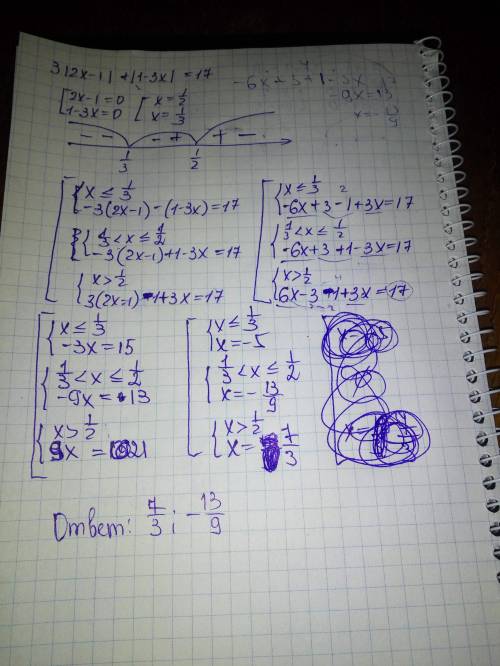 3|2x-1| + |1-3x| = 17
-6x+3+1-3x
-9x=13
x=-13/9
[2x-1=0 [x=1/2
1-3x=0 x=1/3
- - - + + -
1/3 1/2
{x≤1/3
-3(2x-1)-(1-3x)=17
{1/3<x≤1/2
-3(2x-1)+1-3x=17
{x>1/2
3(2x-1)-1+3x=17
{x≤1/3
-6x+3-1+3x=17
{1/3<x≤1/2
-6x+3+1-3x=17
{x>1/2
6x-3-1+3x=17
{x≤1/3
-3x=15
{1/3<x≤1/2
-9x=13
{x>1/2
9x=21
{x≤1/3
x=-5
{1/3<x≤1/2
x=-13/9
{x>1/2
x=7/3
Ответ: 7/3; -13/9